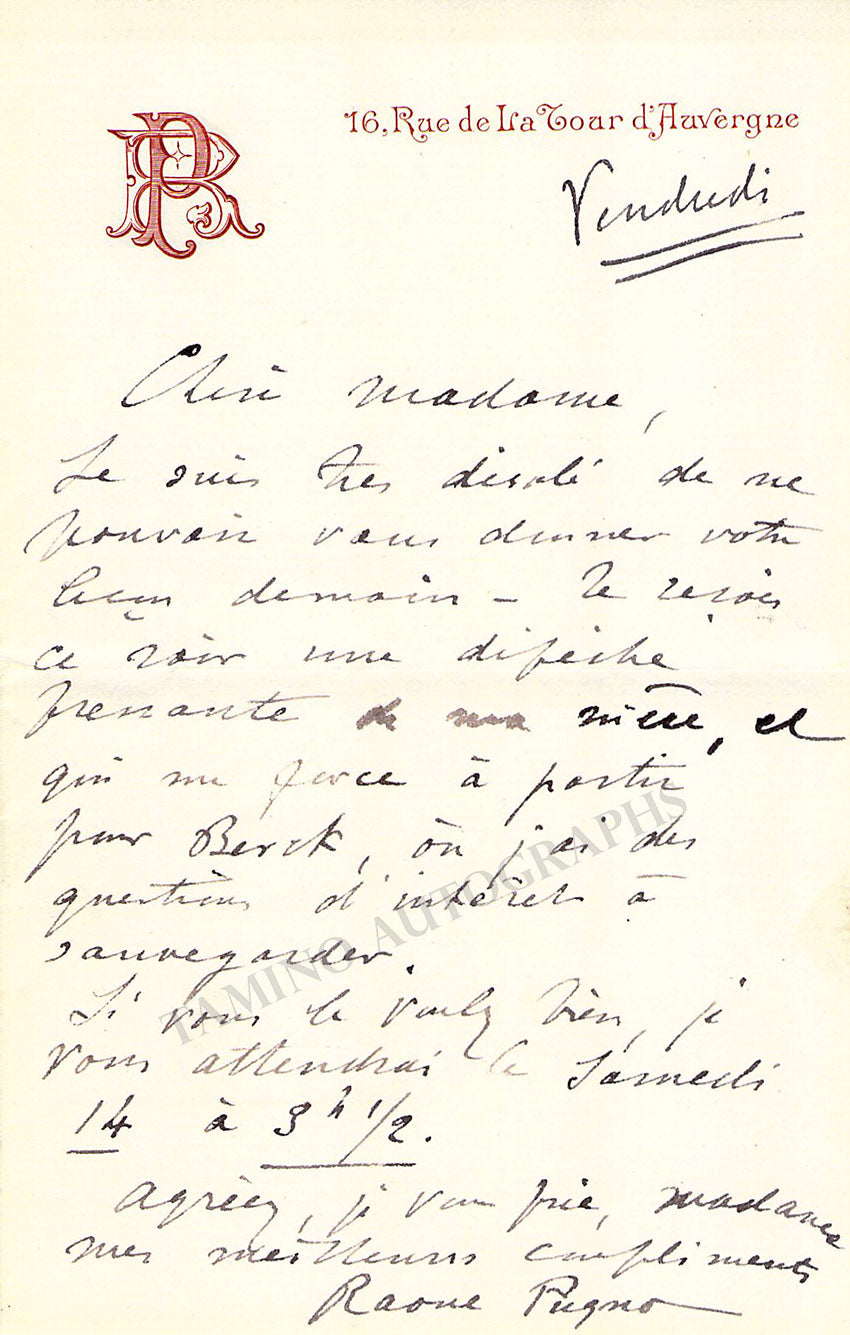 PR
16, Rue de La Tour d'Auvergne
Vendredi
Chère madame,
Je suis très désolé de ne
pouvoir vous donner votre
leçon demain – Je reçois
ce soir une dépêche
pressante de ma mère, et
qui me force à partir
pour Berck, où j'ai des
questions d'intérêts à
sauvegarder.
Si vous le voulez bien, je
vous attendrai le Samedi
14 à 3h 1/2.
Agréez, je vous prie, madame
mes meilleurs compliments
Raoul Pugno
TAMINO AUTOGRAPHS